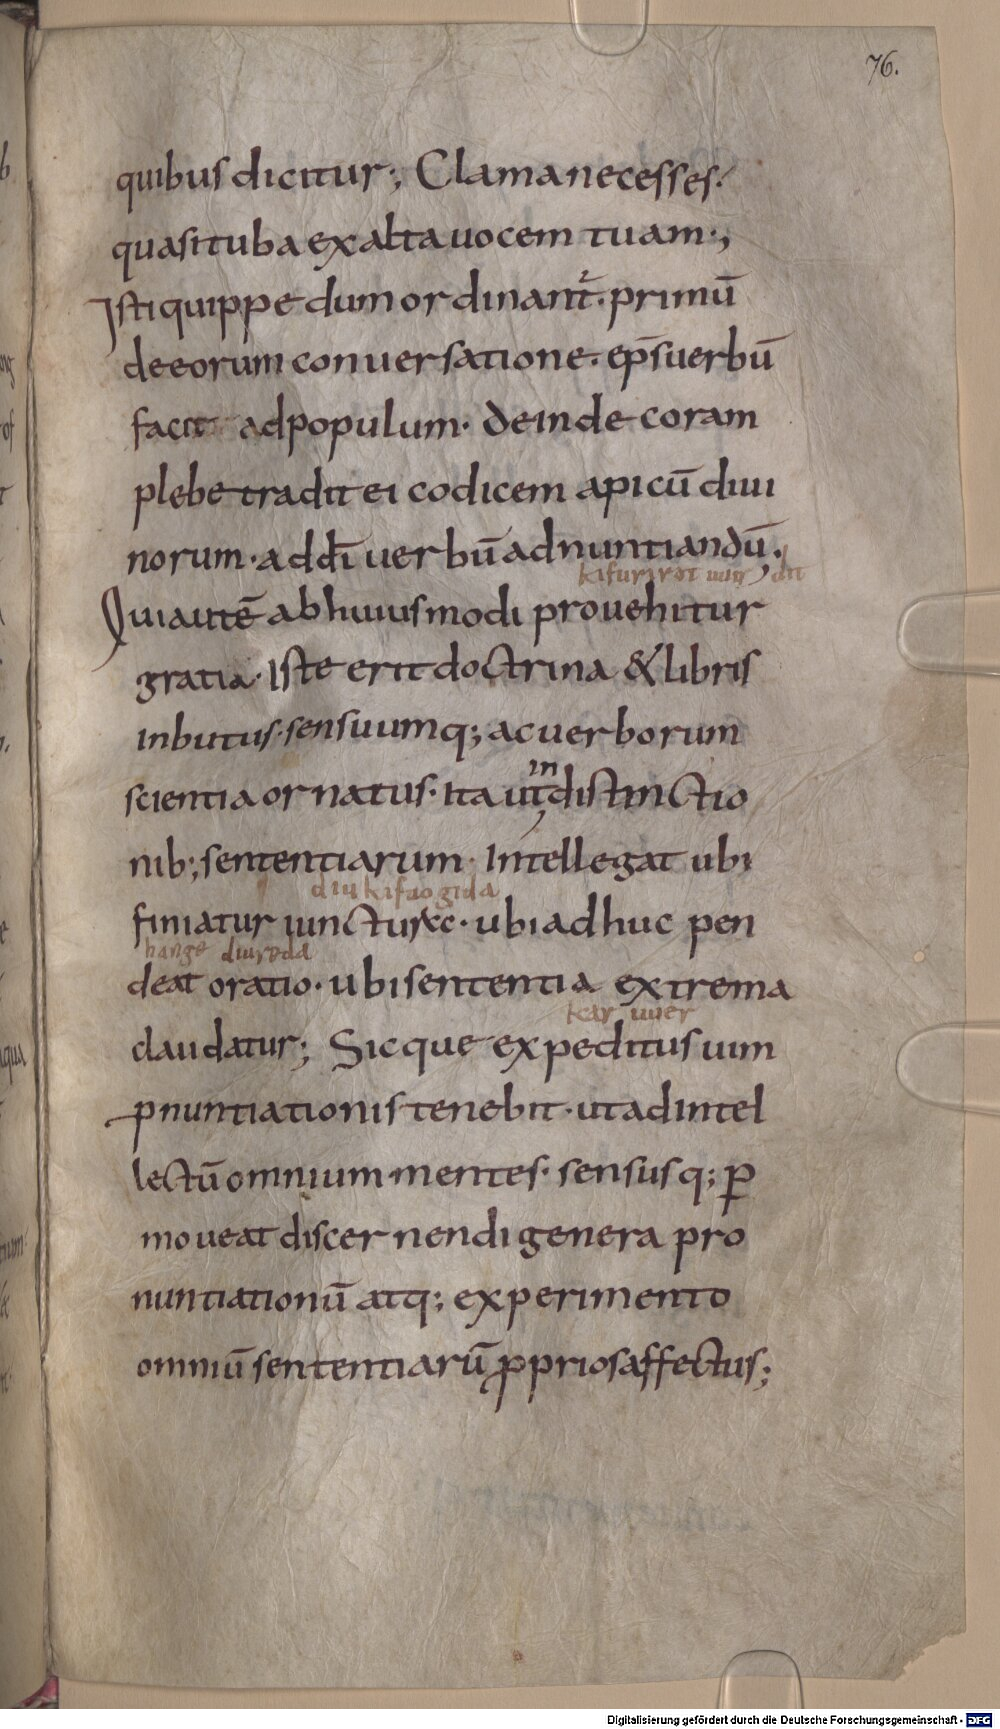 76.
quibus dicitur; Clama ne cesses·
quasi tuba exalta uocem tuam·,
Isti quippe dum ordinant᷑· primū
de eorum conuersatione· ep̄s uerbū
facit ad populum· deinde coram
plebe tradit ei codicem apicū diui
norum· ad dī uerbū adnuntiandū·,
kifurirot uuirdit
Qui autē ab huiusmodi prouehitur
gratia· Iste erit doctrina & libris
Inbutus· sensuumq; ac uerborum
scientia ornatus· ita ut in distinctio
nib; sententiarum· Intellegat ubi
diu kifuogida
finiatur iunctura· ubi adhuc pen
hange diureda
deat oratio· ubi sententia extrema
kar uuer
claudatur; Sic que expeditus uim
ꝓnuntiationis tenebit· ut ad intel
lectū omnium mentes· sensusq; ꝑ
moueat discernendi genera pro
nuntiationū atq; experimento
omniū sententiarū ꝓprios affectus;
Digitalisierung gefördert durch die Deutsche Forschungsgemeinschaft - DFG